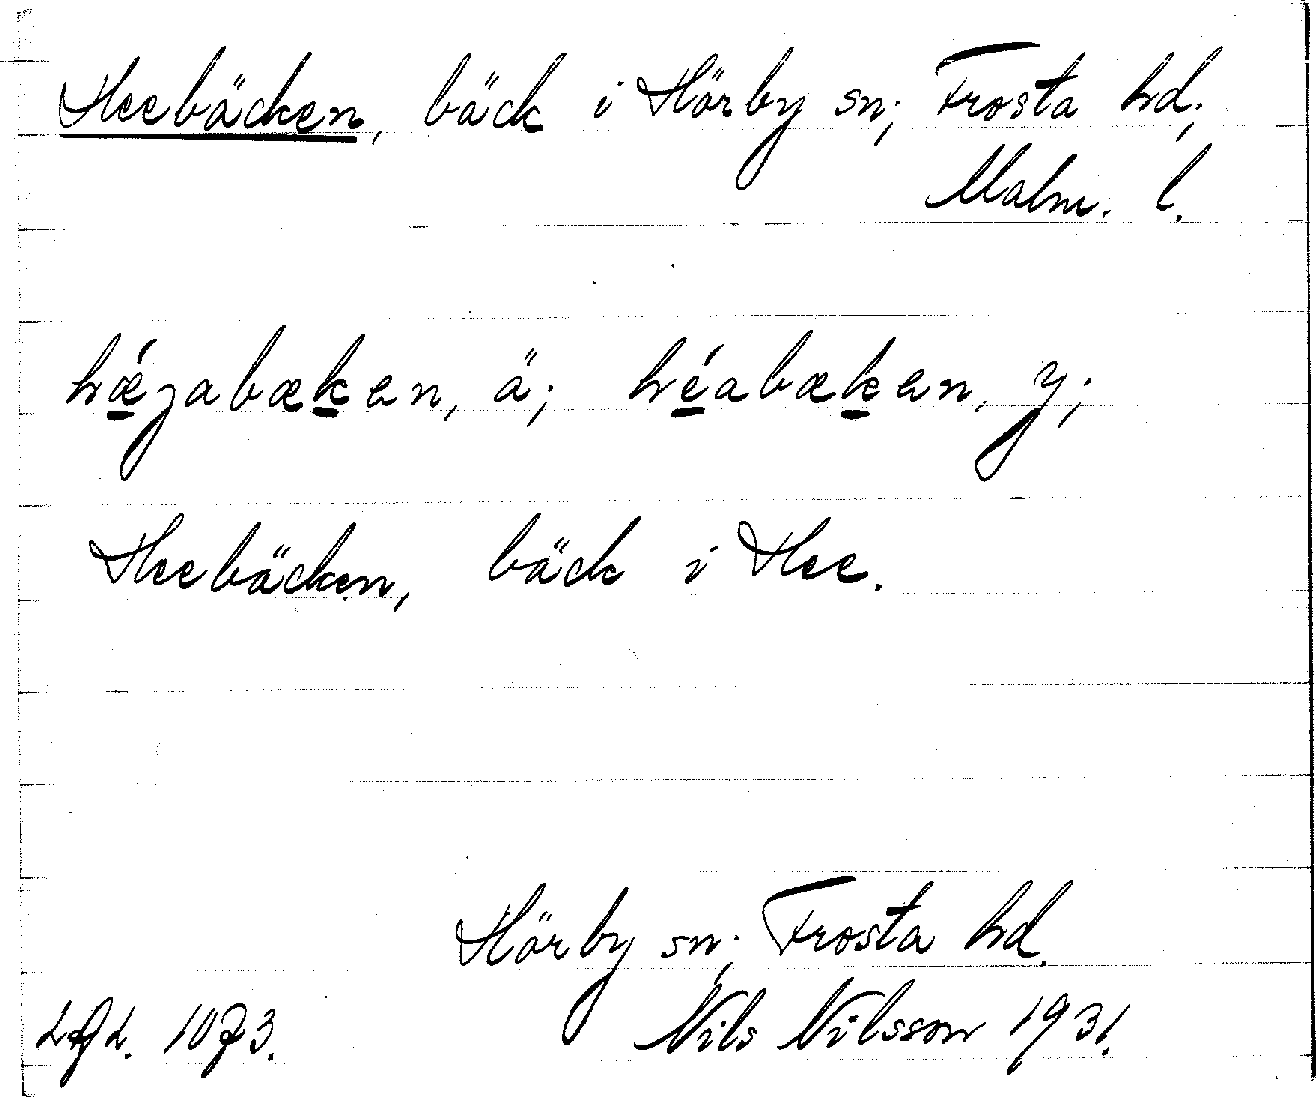 Heebäcken, bäck i Hörby sn; Frosta hd;
Malm. l.
hǽjabæken, ä; héabækan, y;
Heebäcken, bäck i Hee.
Hörby sn; Frosta hd.
1073. Nils Nilsson 1931.